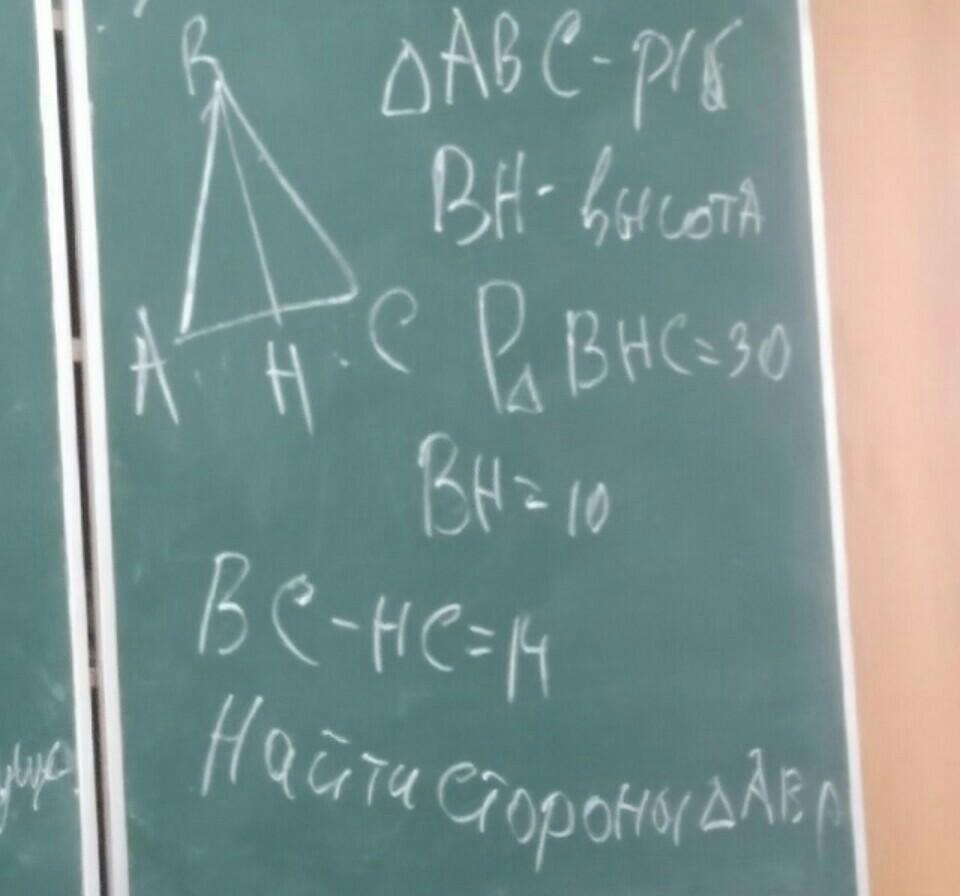 B
△ABC - р/б
BH - высота
A H C
P△BHC=30
BH=10
BC-HC=14
Найти стороны △AB